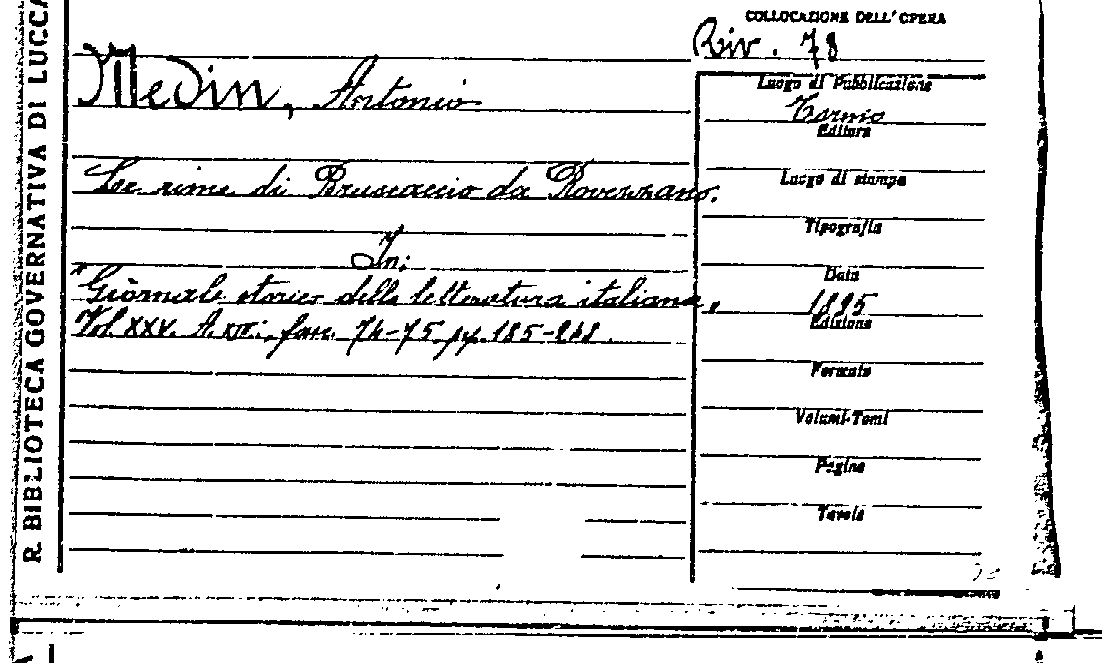 R. BIBLIOTECA GOVERNATIVA DI LUCCA
COLLOCAZIONE DELL'OPERA
Riv. 78
Medin, Antonio
Le rime di Bruscaccio da Rovezzano.
In:
"Giornale storico della letteratura italiana,
Vol. XXV. A. XIII, fasc. 74-75 pp. 185-248.
Luogo di Pubblicazione
Torino
Editore
Luogo di stampa
Tipografia
Data
1895
Edizione
Formato
Volumi-Tomi
Pagine
Tavole